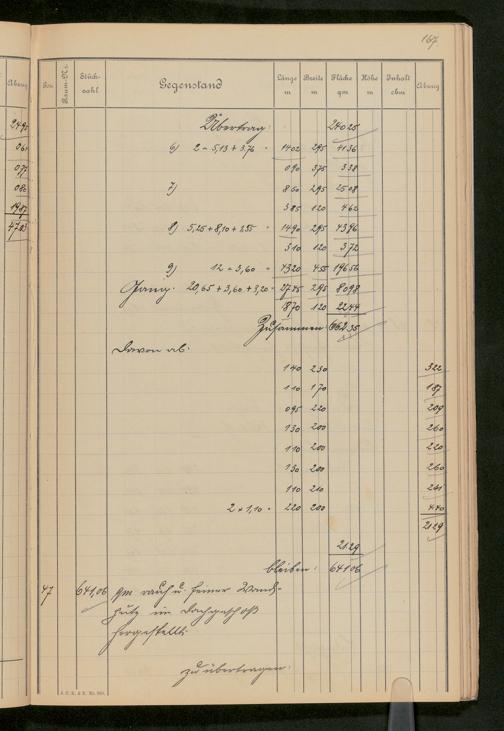 167
Pos
Raum-No.
Stück-
zahl
Gegenstand
Länge
m
Breite
m
Fläche
qm
Höhe
m
Inhalt
cbm
Abzug
Übertrag: 24025
6) 2 - 5,13 + 3,76 = 1402 295 4136
090 375 338
7) 850 295 2508
385 120 462
8) 5,25 + 8,10 + 1,55 = 1490 295 4396
310 120 372
9) 12 - 3,60 = 4320 455 19656
Gang. 20,65 + 3,60 + 3,20 = 2745 295 8098
1870 120 2244
Zusammen 66235
Davon ab:
140 230 322
110 170 187
095 220 209
130 200 260
110 200 220
130 200 260
110 210 231
2 × 1,10 = 220 200 440
2129
2129
bleiben: 64106
47 641,06 qm rauh u. feiner Wand-
putz im Dachgeschoß
hergestellt.
zu übertragen: